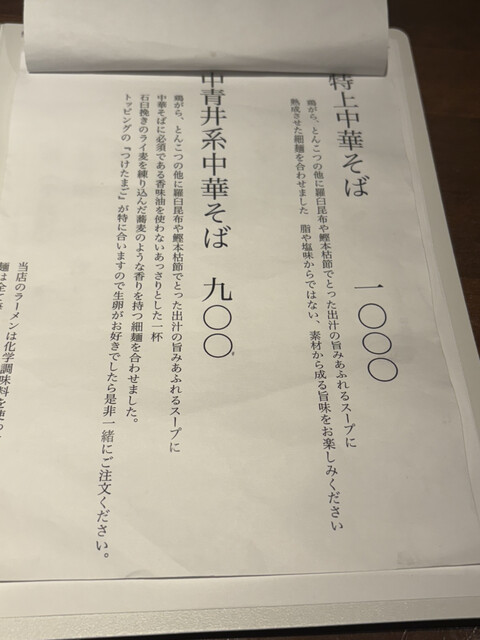 特上中華そば　一〇〇〇
鶏がら、とんこつの他に羅臼昆布や鰹本枯節でとった出汁の旨みあふれるスープに
熟成させた細麺を合わせました　脂や塩味からではない、素材から成る旨味をお楽しみください
中青井系中華そば　九〇〇
鶏がら、とんこつの他に羅臼昆布や鰹本枯節でとった出汁の旨みあふれるスープに
中華そばに必須である香味油を使わないあっさりとした一杯
石臼挽きのライ麦を練り込んだ蕎麦のような香りを持つ細麺を合わせました。
トッピングの『つけたまご』が特に合いますので生卵がお好きでしたら是非一緒にご注文ください。
当店のラーメンは化学調味料を使っ
麺は全て